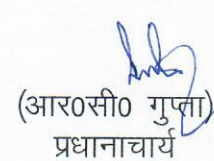 (आर0सी0 गुप्ता)
प्रधानाचार्य